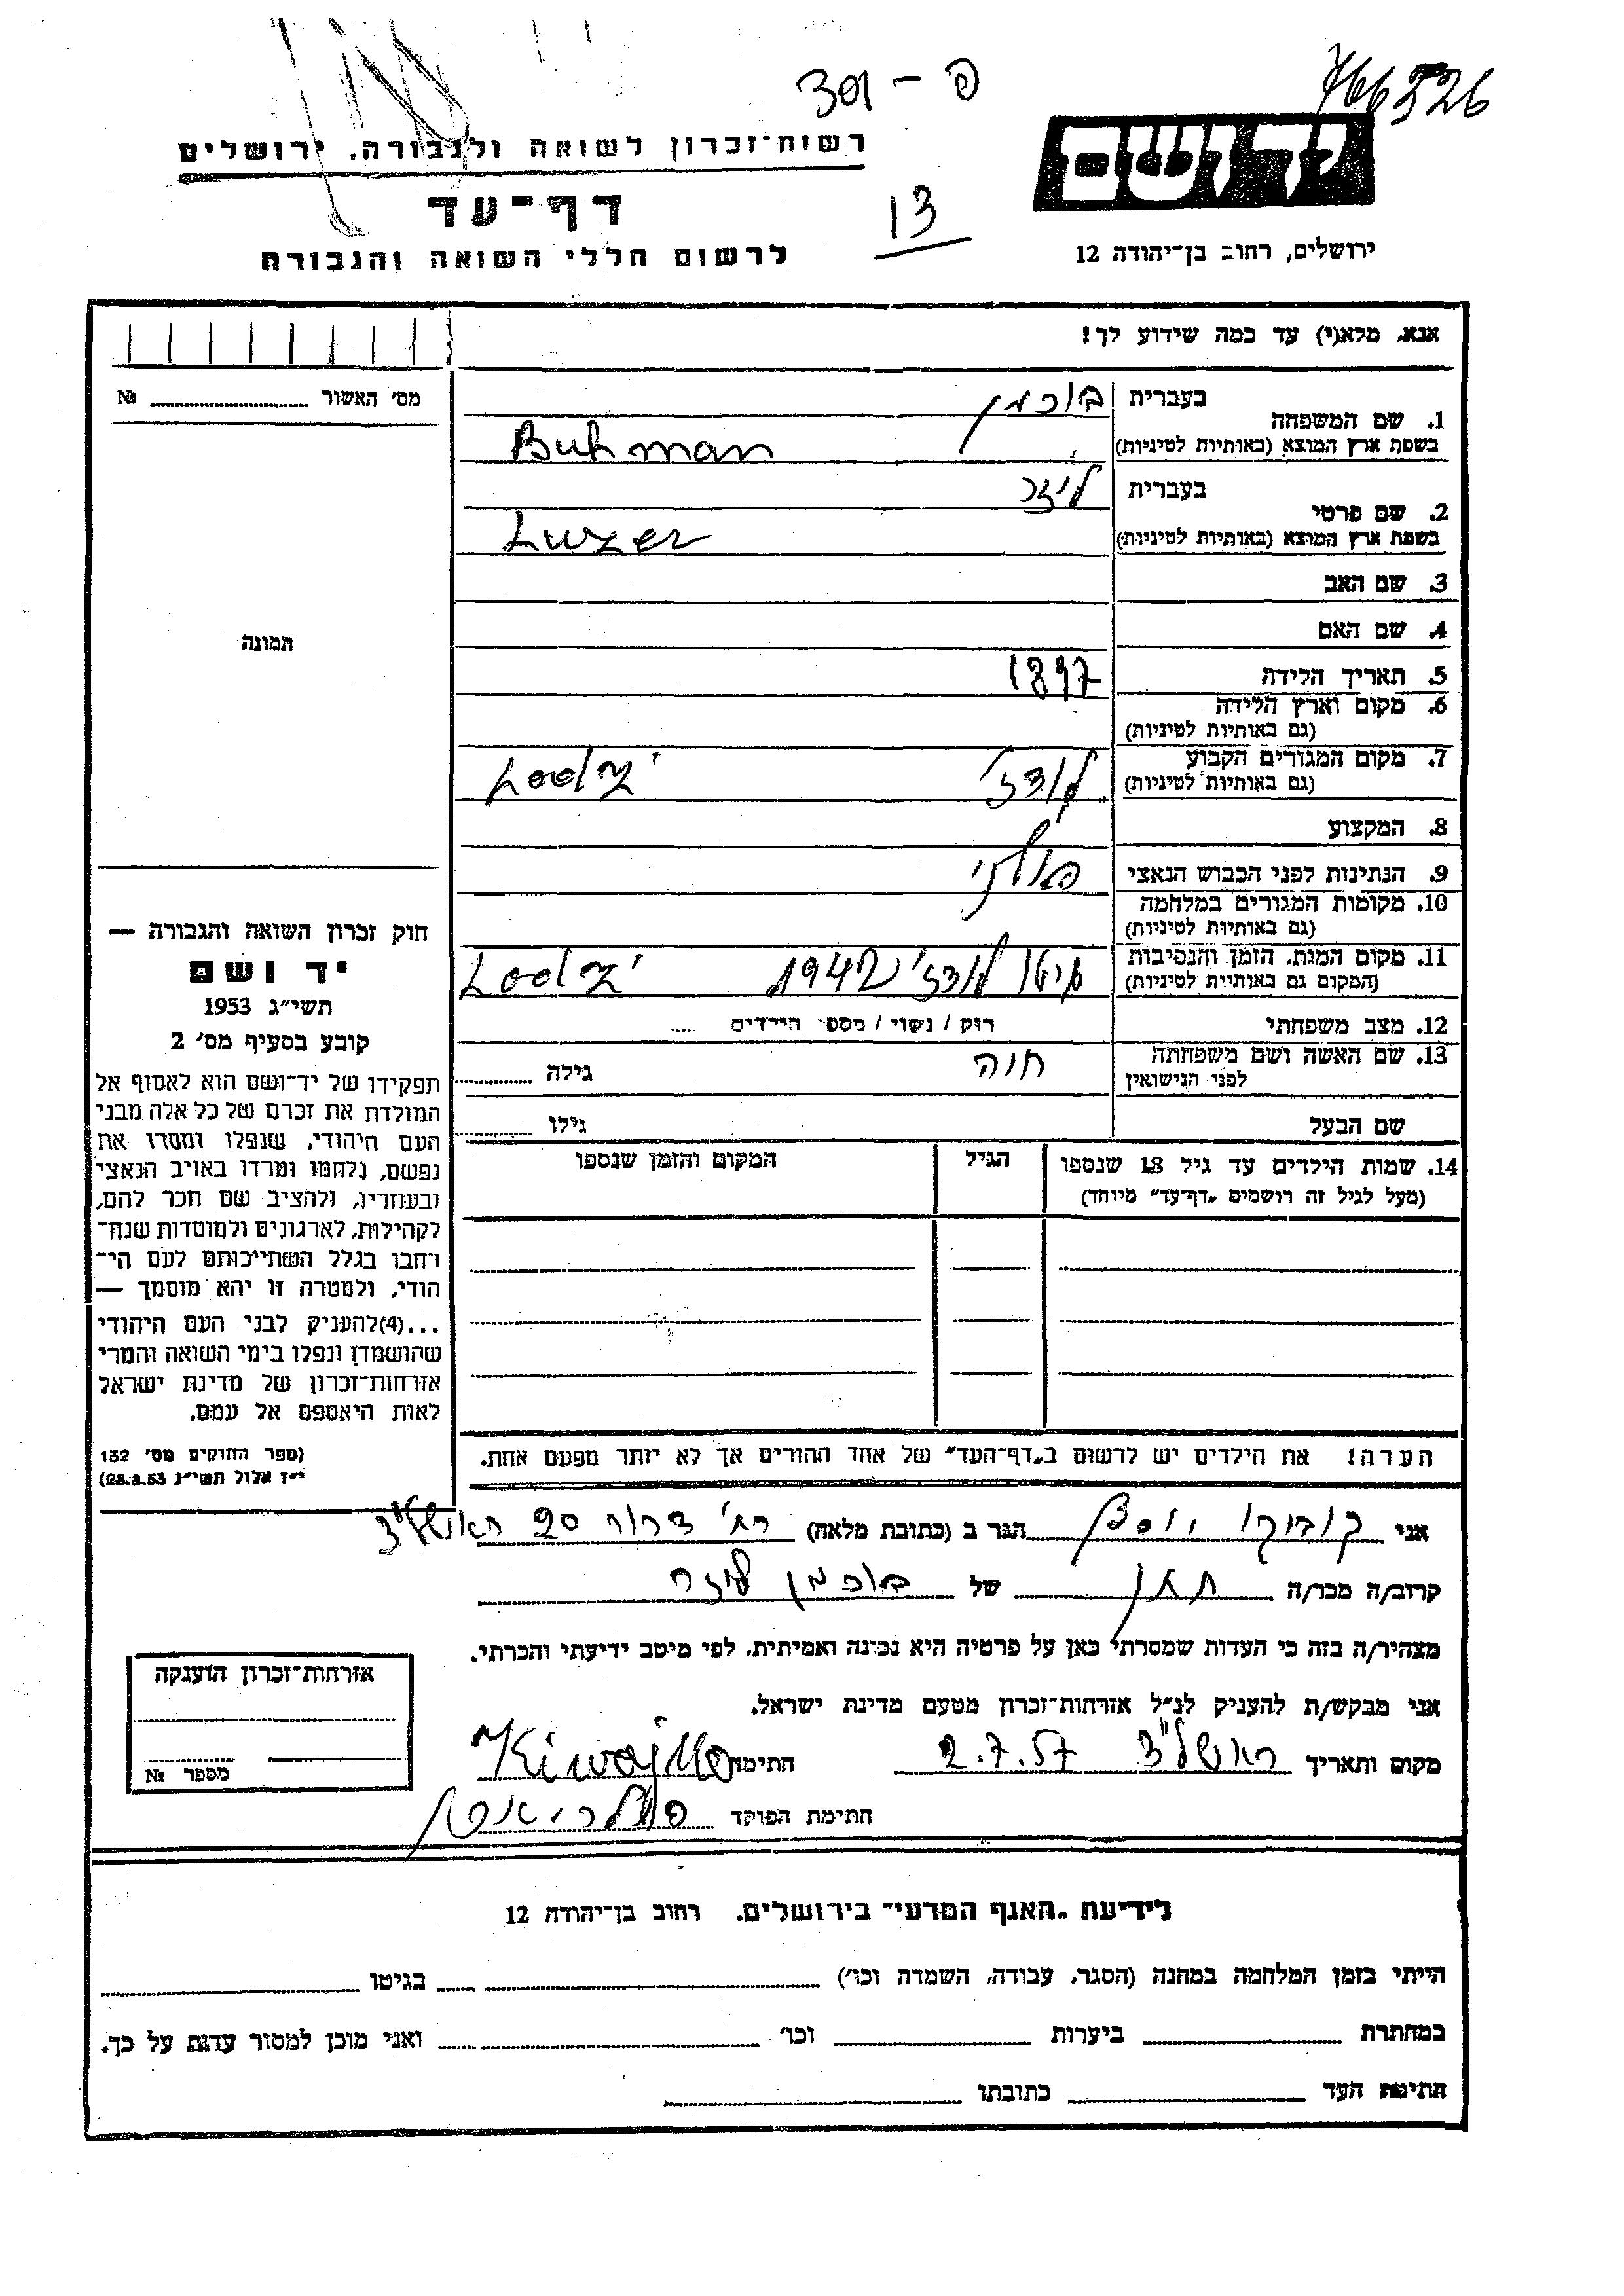 301 - פ
766526
רשות־זכרון לשואה ולגבורה, ירושלים
יד ושם
דף־עד
13
לרשום חללי השואה והגבורה
ירושלים, רחוב בן־יהודה 12
אנא, מלא(י) עד כמה שידוע לך!
מס׳ האשור № 
1. שם המשפחה
בעברית בוכמן
בשפת ארץ המוצא (באותיות לטיניות) Buhman
2. שם פרטי
בעברית ליזר
בשפת ארץ המוצא (באותיות לטיניות) Luzer
3. שם האב
4. שם האם
תמונה
5. תאריך הלידה 1897
6. מקום וארץ הלידה
(גם באותיות לטיניות)
7. מקום המגורים הקבוע
(גם באותיות לטיניות) לודז׳ Lodz
8. המקצוע
9. הנתינות לפני הכבוש הנאצי פולני
10. מקומות המגורים במלחמה
(גם באותיות לטיניות)
11. מקום המות, הזמן והנסיבות
(המקום גם באותיות לטיניות) גיטו לודז׳ 1942 Lodz
12. מצב משפחתי רוק / נשוי / מספר הילדים
13. שם האשה ושם משפחתה
לפני הנישואין חוה גילה
שם הבעל גילו
14. שמות הילדים עד גיל 18 שנספו הגיל המקום והזמן שנספו
(מעל לגיל זה רושמים „דף־עד״ מיוחד)
הערה! את הילדים יש לרשום ב„דף־העד״ של אחד ההורים אך לא יותר מפעם אחת.
חוק זכרון השואה והגבורה —
יד ושם
תשי״ג 1953
קובע בסעיף מס׳ 2
תפקידו של יד־ושם הוא לאסוף אל
המולדת את זכרם של כל אלה מבני
העם היהודי, שנפלו ומסרו את
נפשם, נלחמו ומרדו באויב הנאצי
ובעוזריו, ולהציב שם וזכר להם,
לקהילות, לארגונים ולמוסדות שנח־
רחבו בגלל השתייכותם לעם הי־
הודי, ולמטרה זו יהא מוסמך —
...(4)להעניק לבני העם היהודי
שהושמדו ונפלו בימי השואה והמרי
אזרחות־זכרון של מדינת ישראל
לאות היאספם אל עמם.
(ספר החוקים מס׳ 132
י״ז אלול תשי״ג 28.8.53)
אני יוסף הגר ב (כתובת מלאה) רח׳ דרור 20 ראשל״צ
קרוב/ה מכר/ה חתן של בוכמן ליזר
מצהיר/ה בזה כי העדות שמסרתי כאן על פרטיה היא נכונה ואמיתית, לפי מיטב ידיעתי והכרתי.
אני מבקש/ת להעניק לנ״ל אזרחות־זכרון מטעם מדינת ישראל.
מקום ותאריך ראשל״צ 2.7.57 חתימה
חתימת הפוקד
אזרחות־זכרון הוענקה
מספר №
לידיעת „האגף המדעי״ בירושלים, רחוב בן־יהודה 12
הייתי בזמן המלחמה במחנה (הסגר, עבודה, השמדה וכו׳) בגיטו
במחתרת ביערות וכו׳ ואני מוכן למסור עדות על כך.
חתימת העד כתובתו